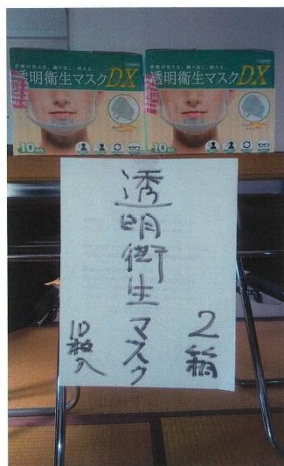 透明衛生マスクDX
10枚入
透明衛生マスクDX
10枚入
透明衛生マスク
2箱
10枚入